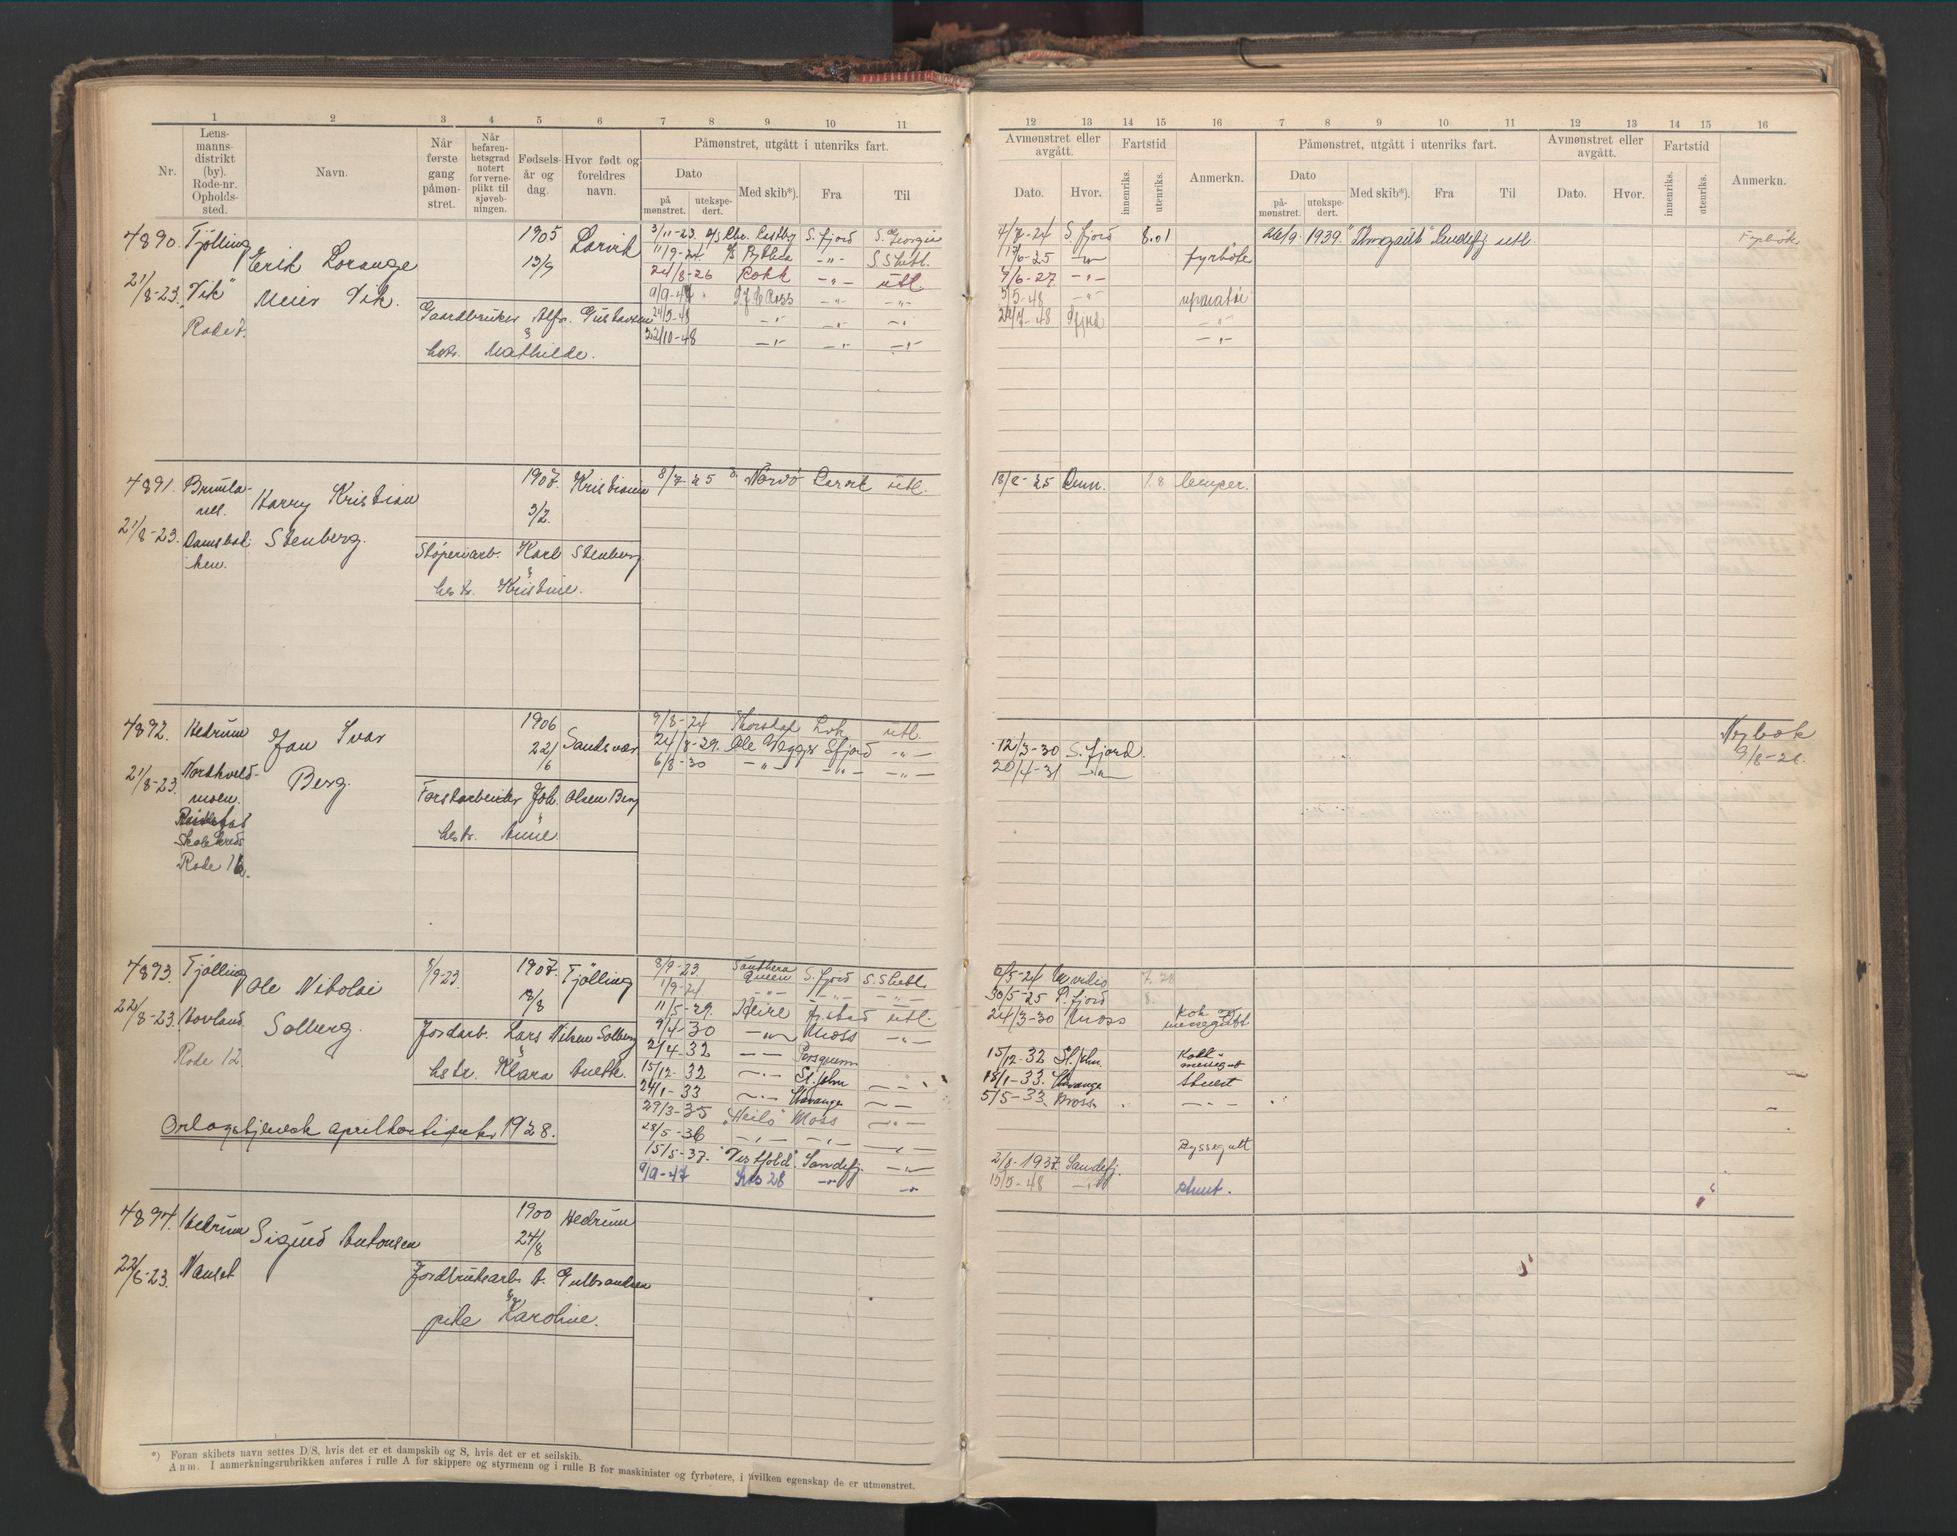 1 2 3 4 5 6 7 8 9 10 11
Nr. Lensmannsdistrikt (by). Rode-nr. Opholdssted. Navn. Når første gang påmønstret. Når befarenhetsgrad notert for verneplikt til sjøvebningen. Fødselsår og dag. Hvor født og foreldres navn. Påmønstret, utgått i utenriks fart.
Dato på mønstret. utekspedert. Med skib*). Fra Til
12 13 14 15 16 7 8 9 10 11 12 13 14 15 16
Avmønstret eller avgått. Fartstid Anmerkn. Påmønstret, utgått i utenriks fart. Avmønstret eller avgått. Fartstid Anmerkn.
Dato. Hvor. innenriks. utenriks. Dato påmønstret. utekspedert. Med skib*). Fra Til Dato. Hvor. innenriks. utenriks.
4890. Tjölling Erik Lorange 1905 Larvik
21/8-23. "Vik" Meier Vik. 13/9
Rode 7.
Gaardbruker Alfr. Gustavsen
&
hstr. Mathilde.
3/11-23. D/S Chr. Castby S. fjord S. Georgia 4/7-24 S. fjord 8.01
11/9-24. Bythia -"- S. Shetl. 17/6-25 -"- fyrböte
24/8-26 Rokk -"- utl. 7/6-27 -"-
9/9-47 Ross -"- -"- 5/5-48 -"- uparatör
-"- -"- -"- 24/7-48 Sfjord -"-
22/10-48 -"- -"- -"- -"-
26/9. 1939. "Thorgaut" Sandefj utl. Fyrbök
4891. Brunlanes. Harry Kristian 1907. Kristiania
21/8-23. Damsbakken. Stenberg. 3/2.
Stöperiarb. Karl Stenberg
&
hstr. Kristine.
8/7-25 Larvik utl. 18/8-25 1.8
4892. Hedrum Jan Ivar 1906 Sandsvær
21/8-23. Nordkveldmoen. Berg. 22/6
Skolekreds
Rode 16.
Forstarbeider Joh. Olsen Berg
&
hstr. Anne.
9/8-24 Thorstaf Lvk utl.
24/8-29. Ole Wegger Sfjord -"- 12/3-30 S. fjord.
6/8-30 -"- -"- -"- 20/4-31 -"-
Nybok
9/8-26.
4893. Tjölling Ole Nikolai 5/9-23. 1907. Tjölling
22/8-23. Hovland Solberg. 18/8
Rode 12.
Jordarb. Lars Nilsen Solberg
&
hstr. Klara Aneth.
Orlogstjeneste 1928.
8/9-23. Southern Queen S. fjord S. Shetl. 6/5-24
1/9-24 -"- -"- -"- 30/5-25 fjord 8.
11/5-29. Heire utl. 24/3-30 Moss Kok og messegutt
9/4-30 -"- Moss -"-
2/4-32 -"- Porsgrunn 15/12-32 St. John.
15/12-32 -"- St. John -"- 18/1-33. Stavanger Stuert
24/1-33 -"- Stavanger -"- 5/5-33. Moss. -"-
29/3-35 "Heilo" Moss -"-
28/5-36 -"- -"- -"- Dyssegutt
15/5-37. "Vestfold" Sandefj. -"- 2/8-1937. Sandefj.
9/9-47 Kos 28 -"- -"- 15/5-48 -"- stuert.
4894. Hedrum Sigurd Antonsen 1900 Hedrum
22/8-23. Nanset 24/8
Jordbruksarb. A. Gulbrandsen
&
pike Karoline.
*) Foran skibets navn settes D/S, hvis det er et dampskib og S, hvis det er et seilskib.
Anm. I anmerkningsrubrikken anføres i rulle A for skippere og styrmenn og i rulle B for maskinister og fyrbøtere, i hvilken egenskap de er utmønstret.